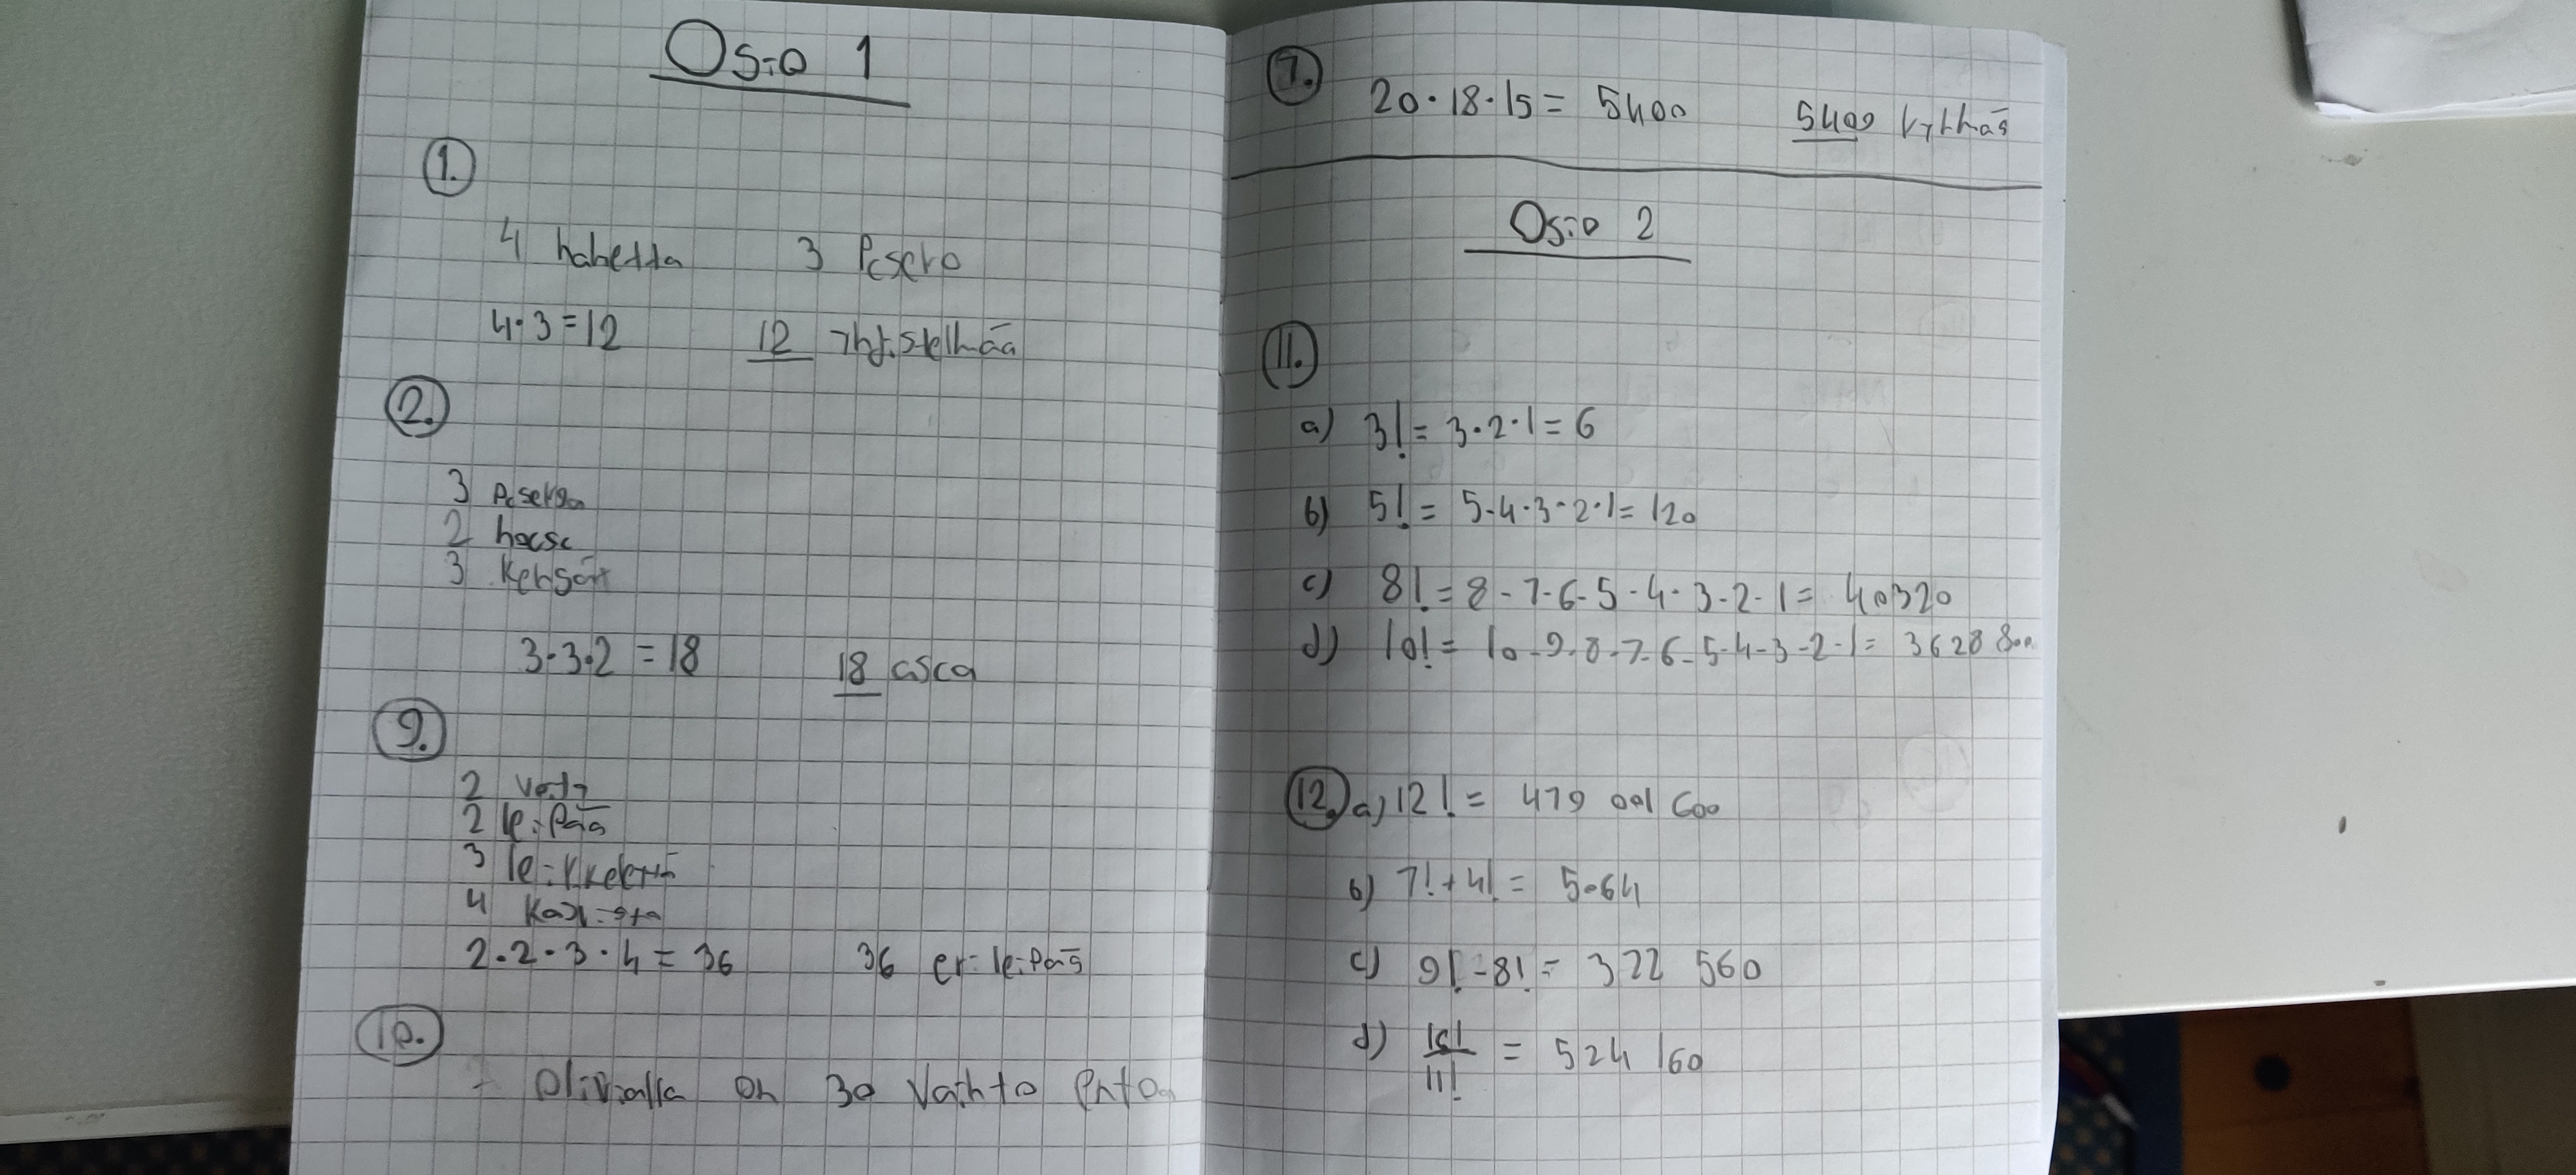 Osio 1
1.
4 hametta 3 Pasero
4·3=12 12 yhdistelmää
2.
3 paseroa
2 housu
3 kengät
3·3·2 = 18 18 asua
9.
2 voita
2 leipää
3 leikkelettä
4 kasvista
2·2·3·4 = 36 36 eri leipää
10.
- Olivialla on 30 vaihto ehtoa
7.
20·18·15 = 5400 5400 ryhmää
Osio 2
11.
a) 3! = 3·2·1 = 6
b) 5! = 5·4·3·2·1 = 120
c) 8! = 8·7·6·5·4·3·2·1 = 40320
d) 10! = 10·9·8·7·6·5·4·3·2·1 = 3628 800
12. a) 12! = 479 001 600
b) 7!+4! = 5064
c) 9!-8! = 322 560
d) 16!/11! = 524 160